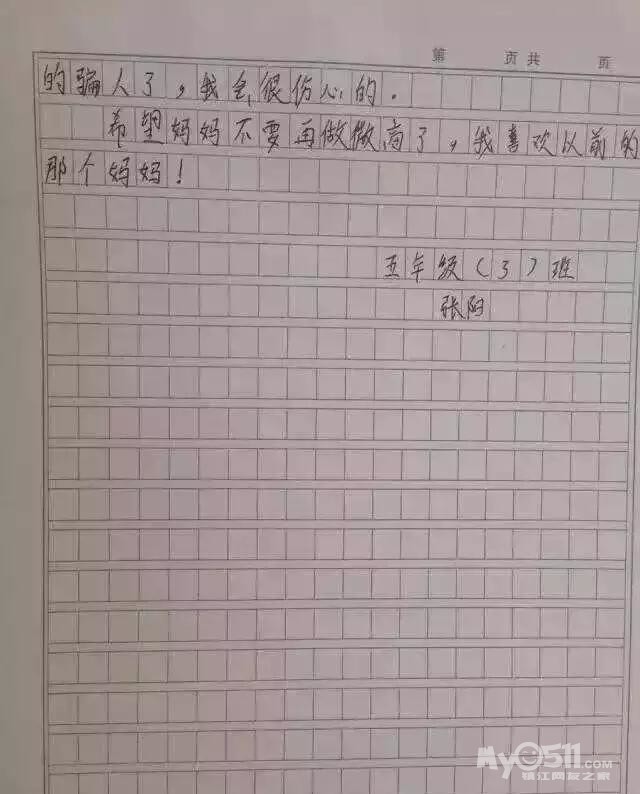 第 页共 页
的骗人了,我会很伤心的.
希望妈妈不要再做微商了,我喜欢以前的
那个妈妈!
五年级(3)班
张阳
My0511.com
镇江网友之家